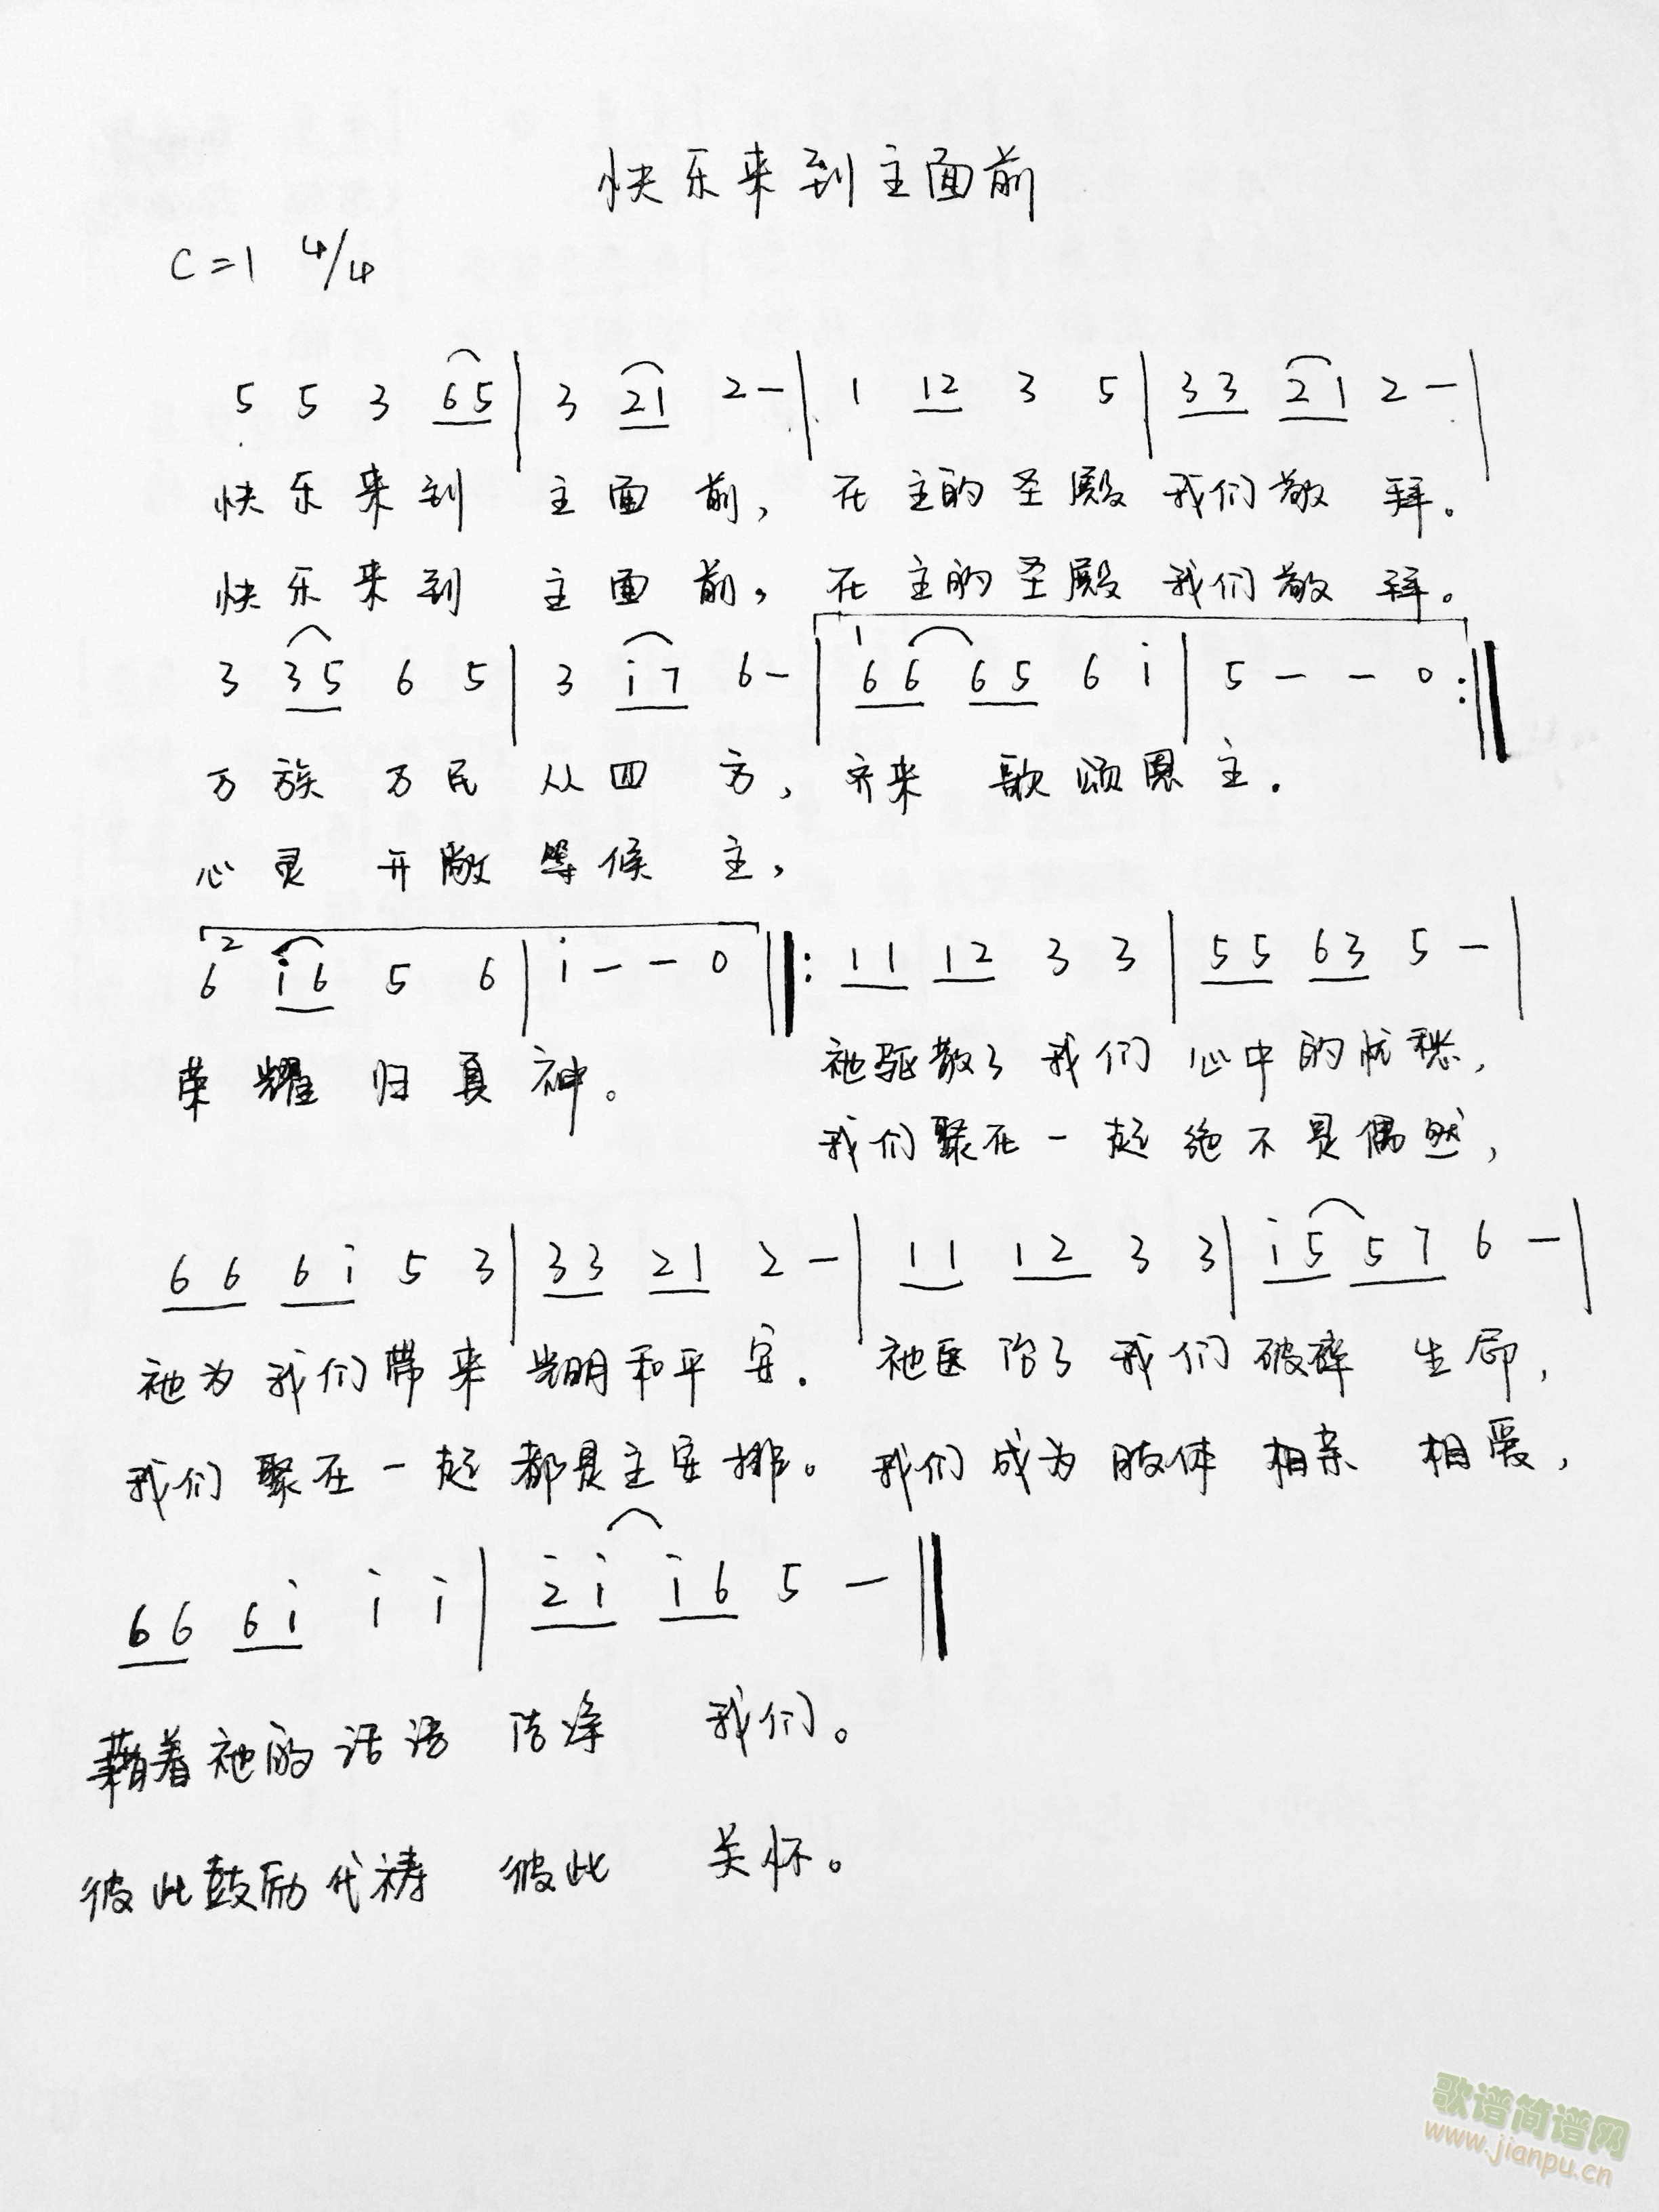 快乐来到主面前
C=1 4/4
5 5 3 65 | 3 21 2 – | 1 12 3 5 | 33 21 2 – |
快乐来到 主面前，在主的圣殿我们敬拜。
快乐来到 主面前，在主的圣殿我们敬拜。
3 35 6 5 | 3 i7 6 – | 1 66 65 6 i | 5 – – 0 :||
万族万民从四方，齐来歌颂恩主.
心灵开敞等候主，
2 6 i6 5 6 | i – – 0 ||: 11 12 3 3 | 55 63 5 – |
荣耀归真神。 祂驱散了我们心中的忧愁，
我们聚在一起绝不是偶然，
66 6i 5 3 | 33 21 2 – | 11 12 3 3 | i5 57 6 – |
祂为我们带来光明和平安. 祂医治了我们破碎生命，
我们聚在一起都是主安排。我们成为肢体相亲相爱，
66 6i i i | 2̇i i6 5 – ||
藉着祂的话语洁净 我们。
彼此鼓励代祷 彼此 关怀。
歌谱简谱网
www.jianpu.cn